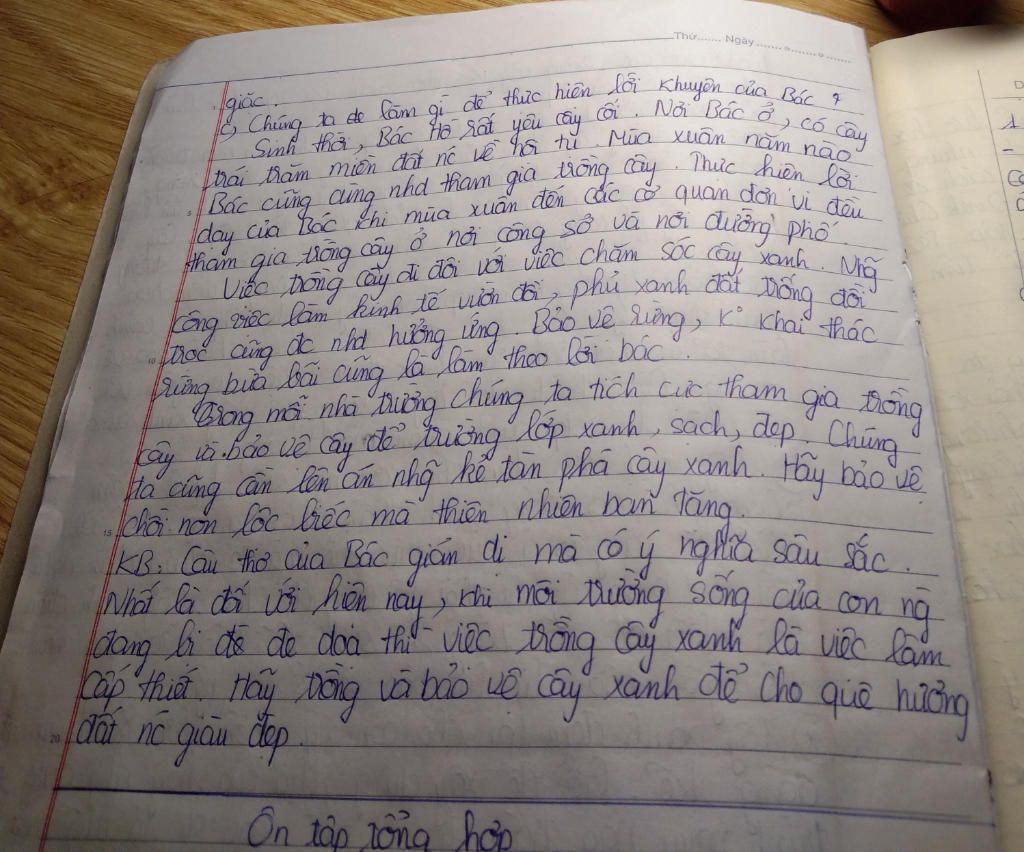 Thứ....... Ngày ....................
giác.
c, Chúng ta đc làm gì để thực hiện lời khuyên của Bác ?
Sinh thời, Bác Hồ rất yêu cây cối. Nơi Bác ở, có cây
trái trăm miền đất nc về hội tụ. Mùa xuân năm nào
Bác cũng cùng nhd tham gia trồng cây. Thực hiện lời
dạy của Bác khi mùa xuân đến các cơ quan đơn vị đều
tham gia trồng cây ở nơi công sở và nơi đường phố.
Việc trồng cây đi đôi với việc chăm sóc cây xanh. Nhg
công việc làm kinh tế vườn đồi, phủ xanh đất trống đồi
trọc cũng đc nhd hưởng ứng. Bảo vệ rừng, K° khai thác
rừng bừa bãi cũng là làm theo lời bác.
Trong mỗi nhà trường chúng ta tích cực tham gia trồng
cây và bảo vệ cây để trường lớp xanh, sạch, đẹp. Chúng
ta cũng cần lên án nhg kẻ tàn phá cây xanh. Hãy bảo vệ
chồi non lộc biếc mà thiên nhiên ban tặng.
KB: Câu thơ của Bác giản dị mà có ý nghĩa sâu sắc.
Nhất là đối với hiện nay, khi môi trường sống của con ng
đang bị đe đe doạ thì việc trồng cây xanh là việc làm
cấp thiết. Hãy trồng và bảo vệ cây xanh để cho quê hương
đất nc giàu đẹp.
Ôn tập tổng hợp